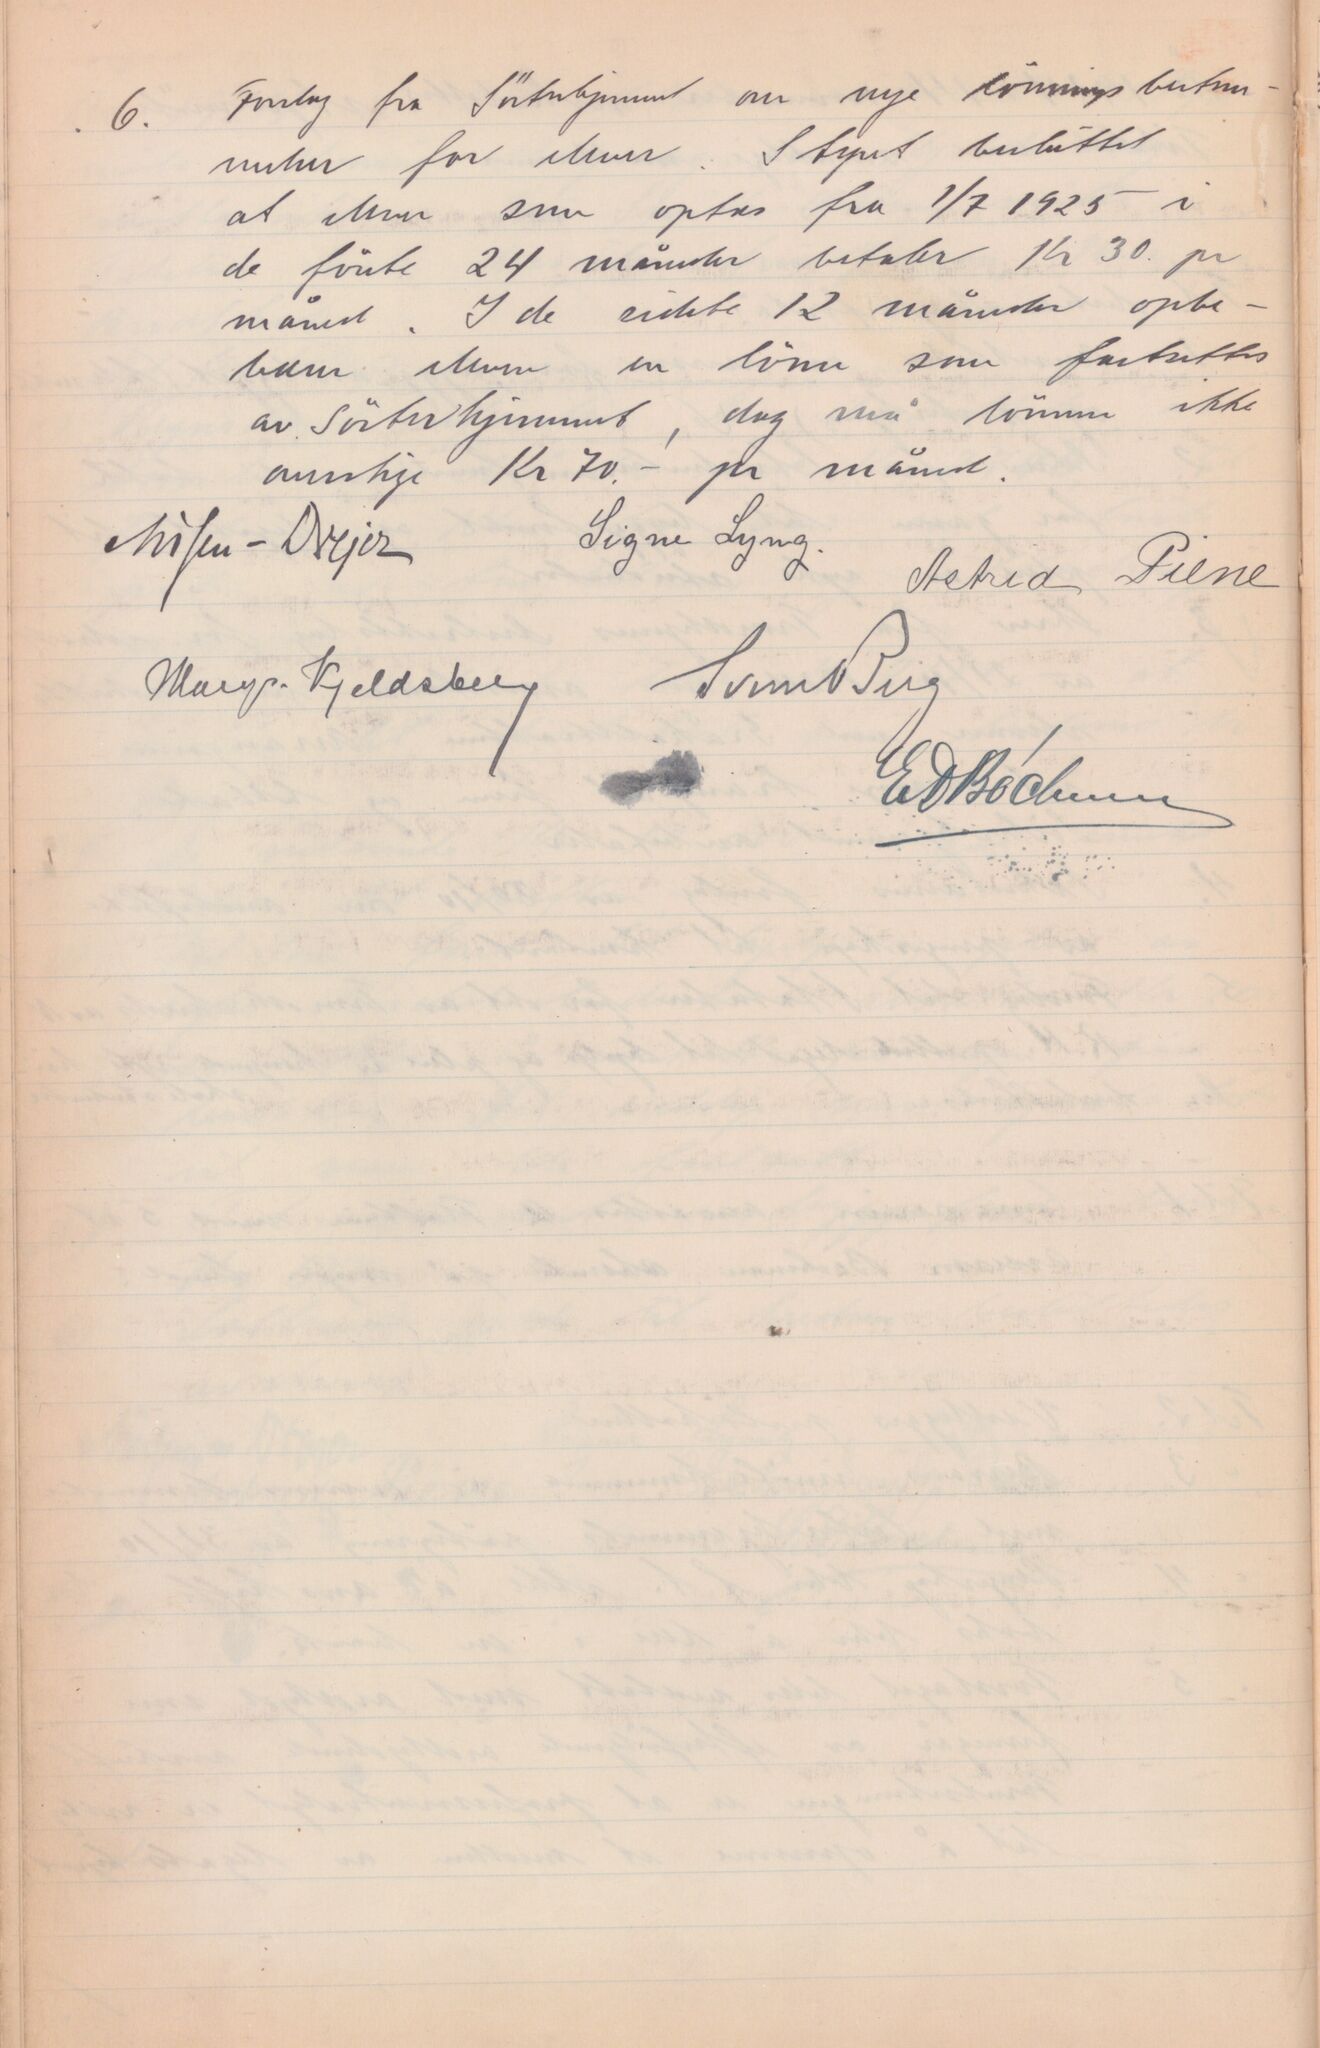 6. Forslag fra Søsterhjemmet om nye lönningsbestem-
melser for elever. Styret besluttet
at elever som optas fra 1/7 1925 i
de första 24 måneder betaler Kr 30. pr
måned. I de sidste 12 måneder oppe-
bærer elevene en lönn som fastsettes
av Sösterhjemmet, dog må lönnen ikke
overstige Kr 70.- pr måned.
Nissen-Drejer Signe Lyng.
Astrid Piene
Marg. Kjeldsberg Svend Berg
E D Bøckman